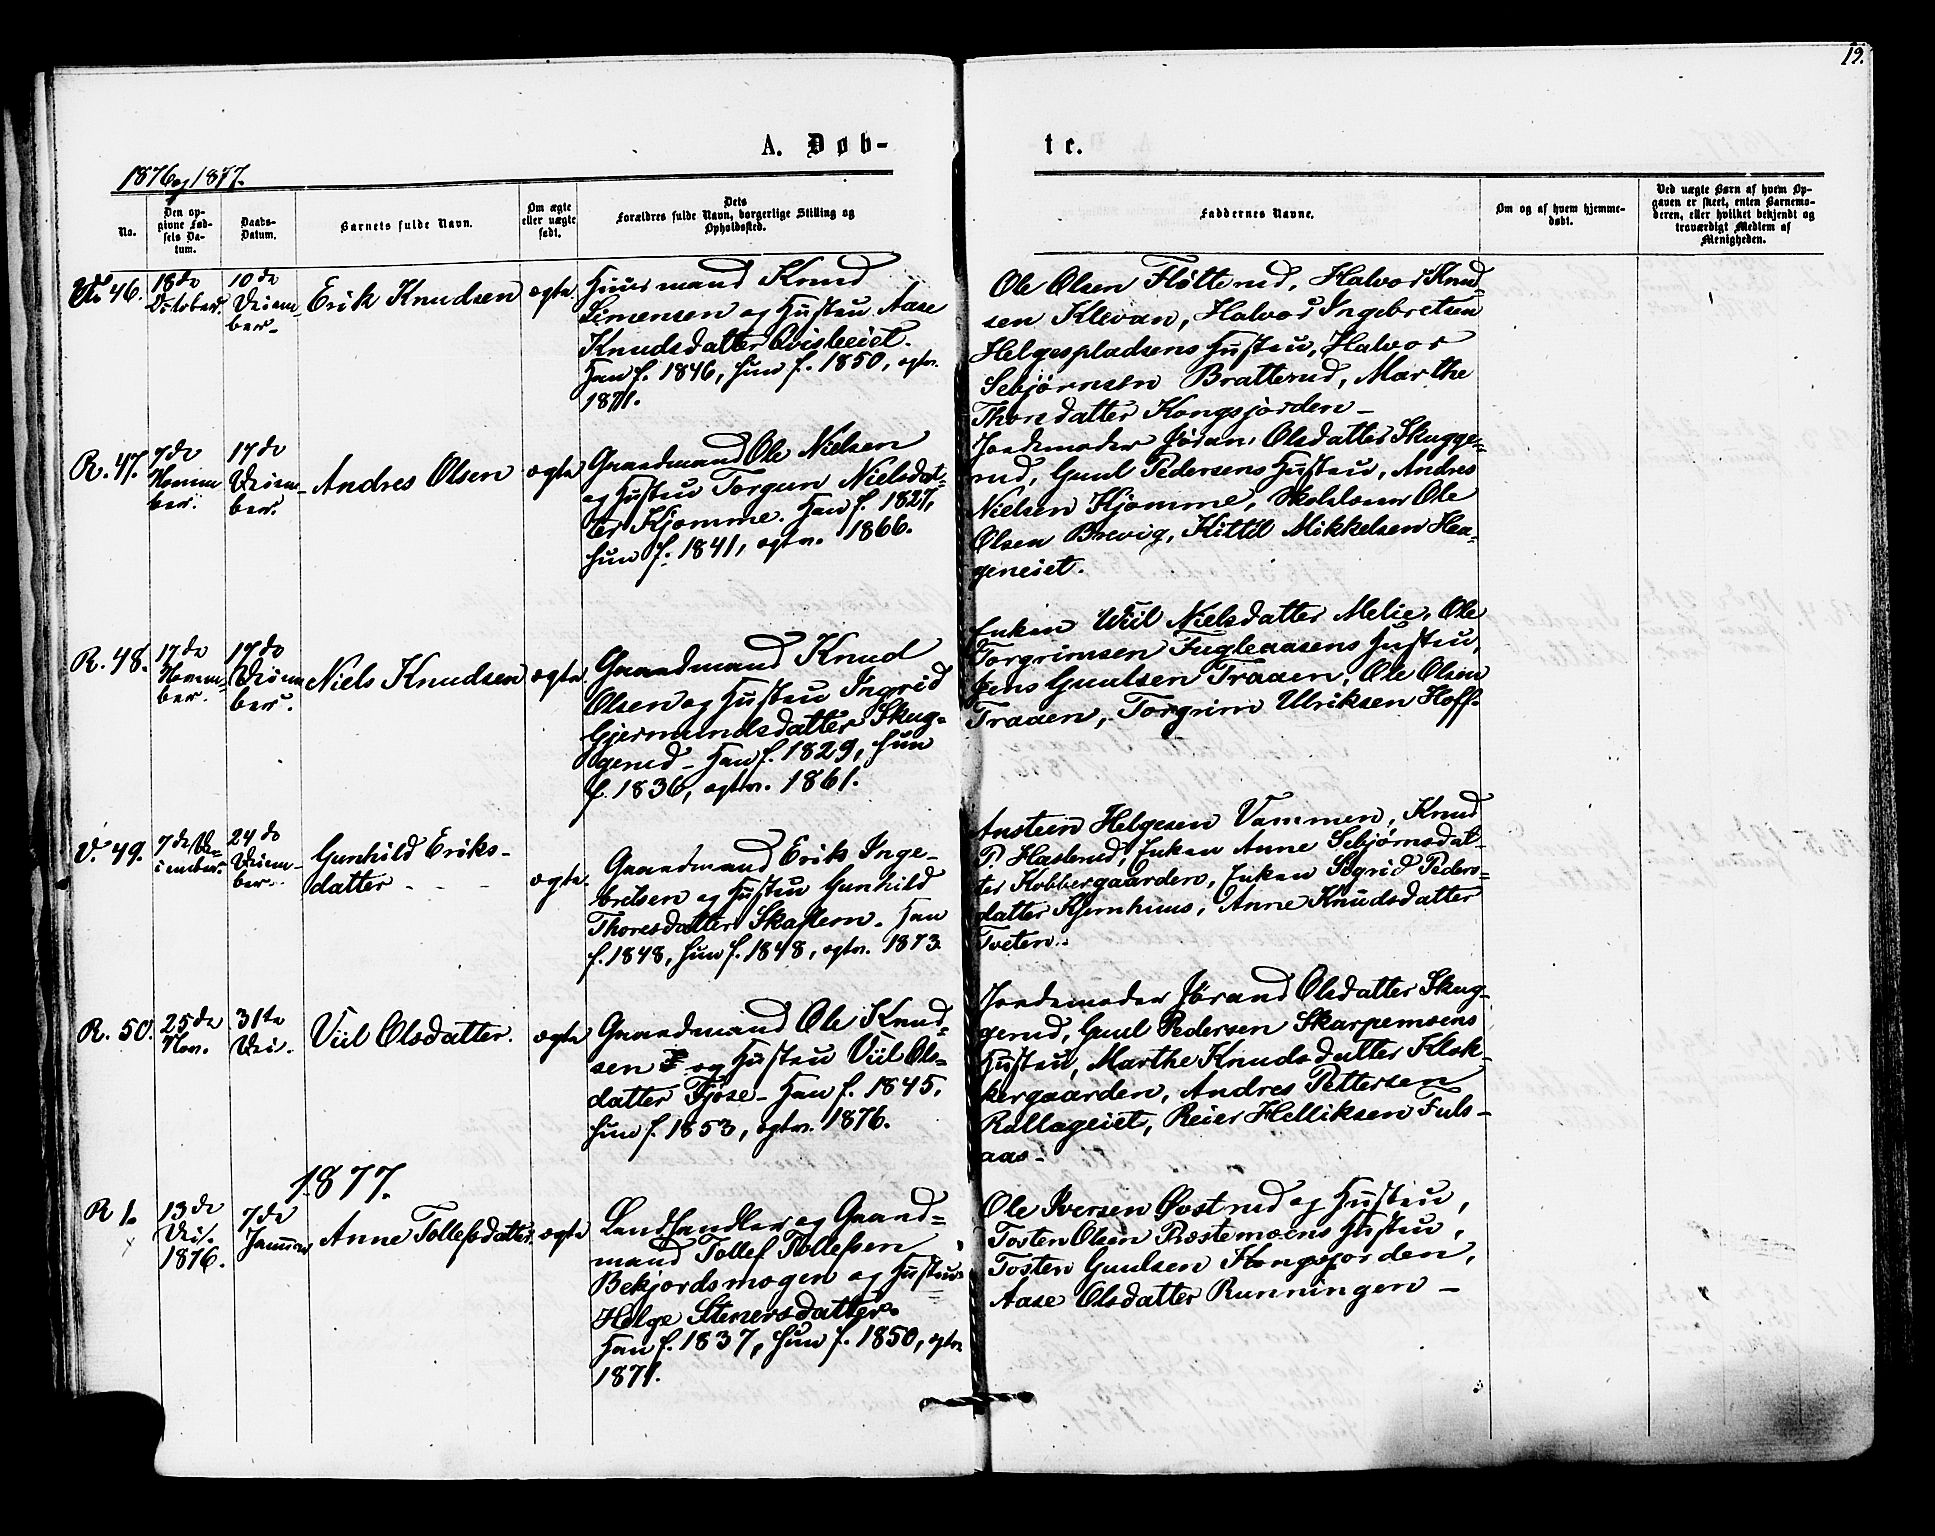 19.
A. Døb-
te.
1876 og 1877.
No.
Den op-
givne Fød-
sels Da-
tum.
Daabs-
Datum.
Barnets fulde Navn.
Om ægte
eller uægte
født.
Dets
Forældres fulde Navn, borgerlige Stilling og
Opholdssted.
Faddernes Navne.
Om og af hvem hjemme-
døbt.
Ved uægte Børn af hvem Op-
gaven er skeet, enten Barnemo-
deren, eller hvilket bekjendt og
troværdigt Medlem af
Menigheden.
46.
18de
October.
10de
Decem-
ber.
Erik Knudsen
ægte.
Huusmand Knud
Simensen og Hustru Aase
Knudsdatter
Han f. 1846, hun f. 1850, egtv.
1871.
Ole Olsen Fløtterud, Halvor Knud-
sen Klevan, Halvor Ingebretsen
Helgespladsens Hustru, Halvor
Sebjørnsen Bratterud, Marthe
Thorsdatter Kongsjorden -
R. 47.
7de
Novem-
ber.
17de
Decem-
ber.
Andres Olsen
ægte
Gaardmand Ole Nielsen
og Hustru Torgun Nielsdat-
ter Kjomme. Han f. 1827,
hun f. 1841, egtv. 1866.
Jordemoder Jøran Olsdatter Skugge-
rud, Guul Pedersens Hustru, Andres
Nielsen Kjomme, Skolelærer Ole
Olsen Brevig, Kittil Mikkelsen Hea-
geneiet.
R. 48.
17de
Novem-
ber.
17de
Decem-
ber.
Niels Knudsen
ægte
Gaardmand Knud
Olsen og Hustru Ingrid
Gjermundsdatter Skug-
gerud - Han f. 1829, hun
f. 1836, egtv. 1861.
Enken Wiil Nielsdatter Melie, Ole
Torgrimsen Fugleaasens Hustru,
Jens Guulsen Traaen, Ole Olsen
Traaen, Torgrim Ulriksen Hoff-
V. 49.
7de De-
cember.
24de
Decem-
ber.
Gunhild Eriks-
datter - - -
ægte.
Gaardmand Erik Inge-
bretsen og Hustru Gunhild
Thoresdatter Skaflem. Han
f. 1848, hun f. 1848, egtv. 1873.
Ansteen Helgesen Vammen, Knud
P. Haslerud, Enken Anne Sebjørnsdat-
ter Kobbergaarden, Enken Sigrid Peders-
datter Kjernhuus, Anne Knudsdatter
Tveten.
R. 50.
25de
Nov.
31te
Dec.
Viil Olsdatter.
ægte
Gaardmand Ole Knud-
sen og Hustru Viil Ols-
datter Fjøse - Han f. 1845,
hun f. 1853, egtv. 1876.
Jordemoder Jørand Olsdatter Skug-
gerud, Guul Pedersen Skarpemoens
Hustru, Marthe Knudsdatter Klok-
kergaarden, Andres Pettersen
Rallageiet, Reier Helliksen Fuls-
aas -
1877.
R 1.
13de
Dec.
1876.
7de
Januar
Anne Tollefsdatter
ægte
Landhandler og Gaard-
mand Tollef Tollefsen
Bekjordsmogen og Hustru
Helge Stenersdatter.
Han f. 1837, hun f. 1850, egtv.
1871.
Ole Iversen Øvstrud og Hustru,
Tosten Olsen Prestemoens Hustru,
Tosten Guulsen Kongsjorden,
Aase Olsdatter Runningen -